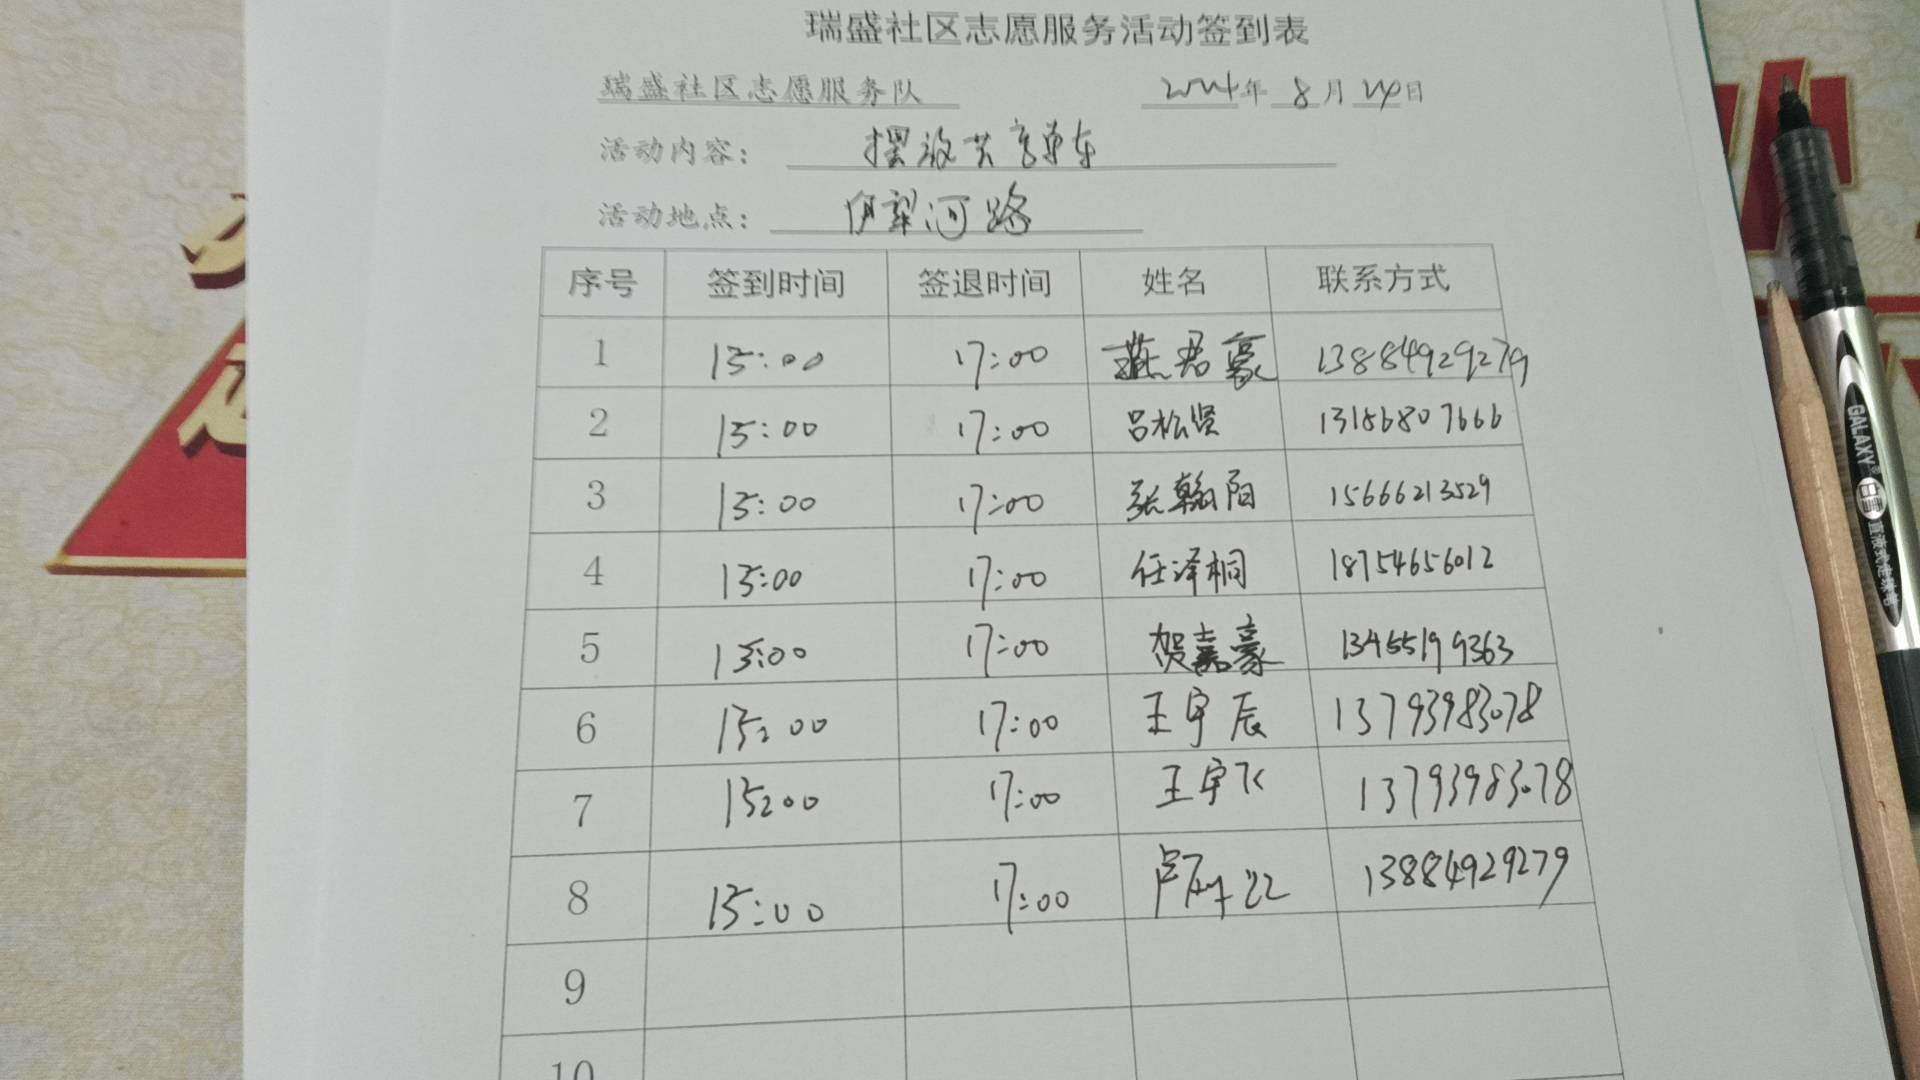 瑞盛社区志愿服务活动签到表
瑞盛社区志愿服务队 2024年 8月 24日
活动内容： 摆放共享单车
活动地点： 伊犁河路
序号 签到时间 签退时间 姓名 联系方式
1 15:00 17:00 燕君豪 13884929279
2 15:00 17:00 吕松贤 13186807666
3 15:00 17:00 张翰阳 15666213529
4 15:00 17:00 任泽桐 18754656012
5 15:00 17:00 贺嘉豪 13455199363
6 15:00 17:00 王宇辰 13793983078
7 15:00 17:00 王宇飞 13793983078
8 15:00 17:00 卢 13884929279
9
10
GALAXY
白雪
直液式走珠笔